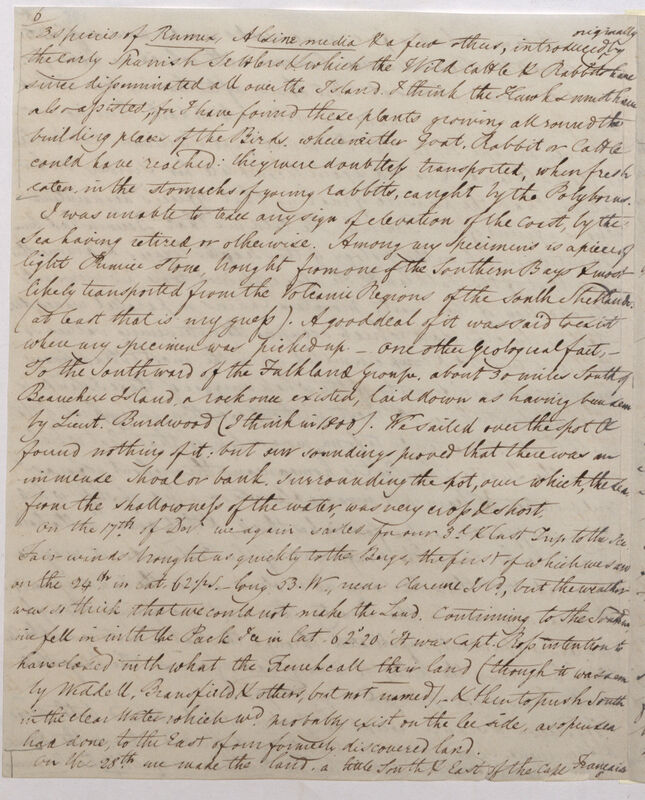 6
3 species of Rumex, Alsine media & a few others, originally introduced by
the early Spanish Settlers & which the Wild Cattle & Rabbits have
since disseminated all over the Island. I think the Hawks must have
also assisted, for I have found these plants growing all round the
building places of the Birds where neither Goat, Rabbit or Cattle
could have reached: they were doubtless transported, when fresh
eaten, in the stomachs of young rabbits, caught by the Polyborus.
I was unable to trace any sign of elevation of the coast, by the
Sea having retired, or otherwise. Among my specimens is a piece of
light Pumice Stone, brought from one of the Southern Bays & most
likely transported from the Volcanic Regions of the South Shetlands.
(at least that is my guess). A good deal of it was said to exist
when my specimen was picked up – One other Geological fact, –
To the Southward of the Falkland groupe, about 30 miles South of
Beauchene Island, a rock once existed, laid down as having been seen
by Lieut. Burdwood (I think in). We sailed over the spot &
found nothing of it, but our soundings proved that there was an
immense Shoal or bank, surrounding the spot, over which, the sea
from the shallowness of the water, was very cross & short.
On the 17th of Decr we again sailed for our 3d & last Trip to the Ice
Fair winds brought us quickly to the Bergs, the first of which we saw
on the 24th in Lat. 62 S. – Long 53. W., near Clarence Isld, but the weather
was so thick that we could not make the Land. Continuing to the
we fell in with the Pack Ice in Lat. 62°20'. It was Capt. Ross intention to
have closed in with what the French call their land (though it was seen
by Weddell, Bransfield & others, but not named) – & then to push South
in the clear Water which wd. probably exist on the lee side, as open sea
had done, to the East of our formerly discovered land.
On the 28th we made the land, a little South & East of the Cape Français